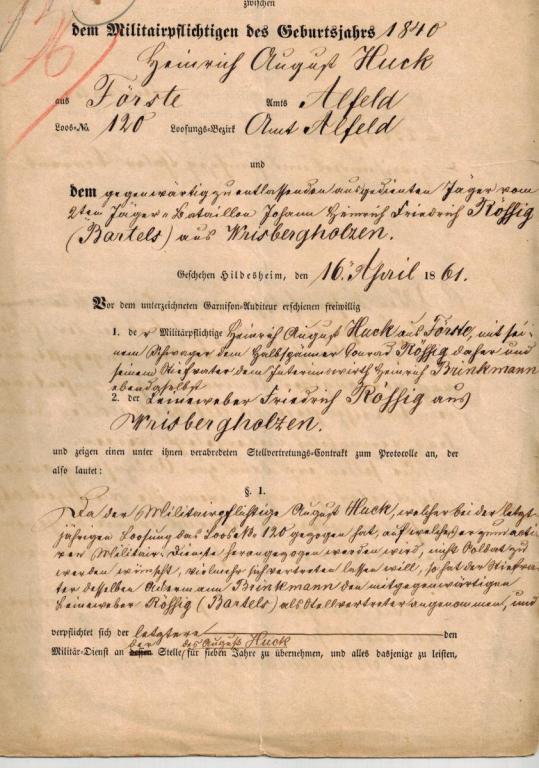 zwischen
dem Militairpflichtigen des Geburtsjahrs 1840
Heinrich August Huck
aus Förste Amts Alfeld
Loos-No. 120 Loosungs-Bezirk Amt Alfeld
und
dem gegenwärtig zu entlassenden ausgedienten Jäger vom
2ten Jäger-Bataillon Johann Heinrich Friedrich Rössig
(Bartels) aus Wrisbergholzen.
Geschehen Hildesheim, den 16. April 1861.
Vor dem unterzeichneten Garnison-Auditeur erschienen freiwillig
1. der Militairpflichtige Heinrich August Huck aus Förste, mit sei-
nem Schwager dem Halbspänner Conrad Rössig daher und
seinem Stiefvater dem Interimswirth Heinrich Brinkmann
ebendaselbst
2. der Leineweber Friedrich Rössig aus
Wrisbergholzen.
und zeigen einen unter ihnen verabredeten Stellvertretungs-Contrakt zum Protocolle an, der
also lautet:
§. 1.
Da der Militairpflichtige August Huck, welcher bei der letzt-
jährigen Loosung das Loos No. 120 gezogen hat, auf welches er zum acti-
ven Militair-Dienste herangezogen werden wird, nicht Soldat zu
werden wünscht, vielmehr sich vertreten lassen will, so hat der Stiefva-
ter desselben Ackermann Brinkmann den mitgegenwärtigen
Leineweber Rössig (Bartels) als Stellvertreter angenommen, und
verpflichtet sich der letztere den
Militär-Dienst an der Stelle des August Huck für sieben Jahre zu übernehmen, und alles dasjenige zu leisten,